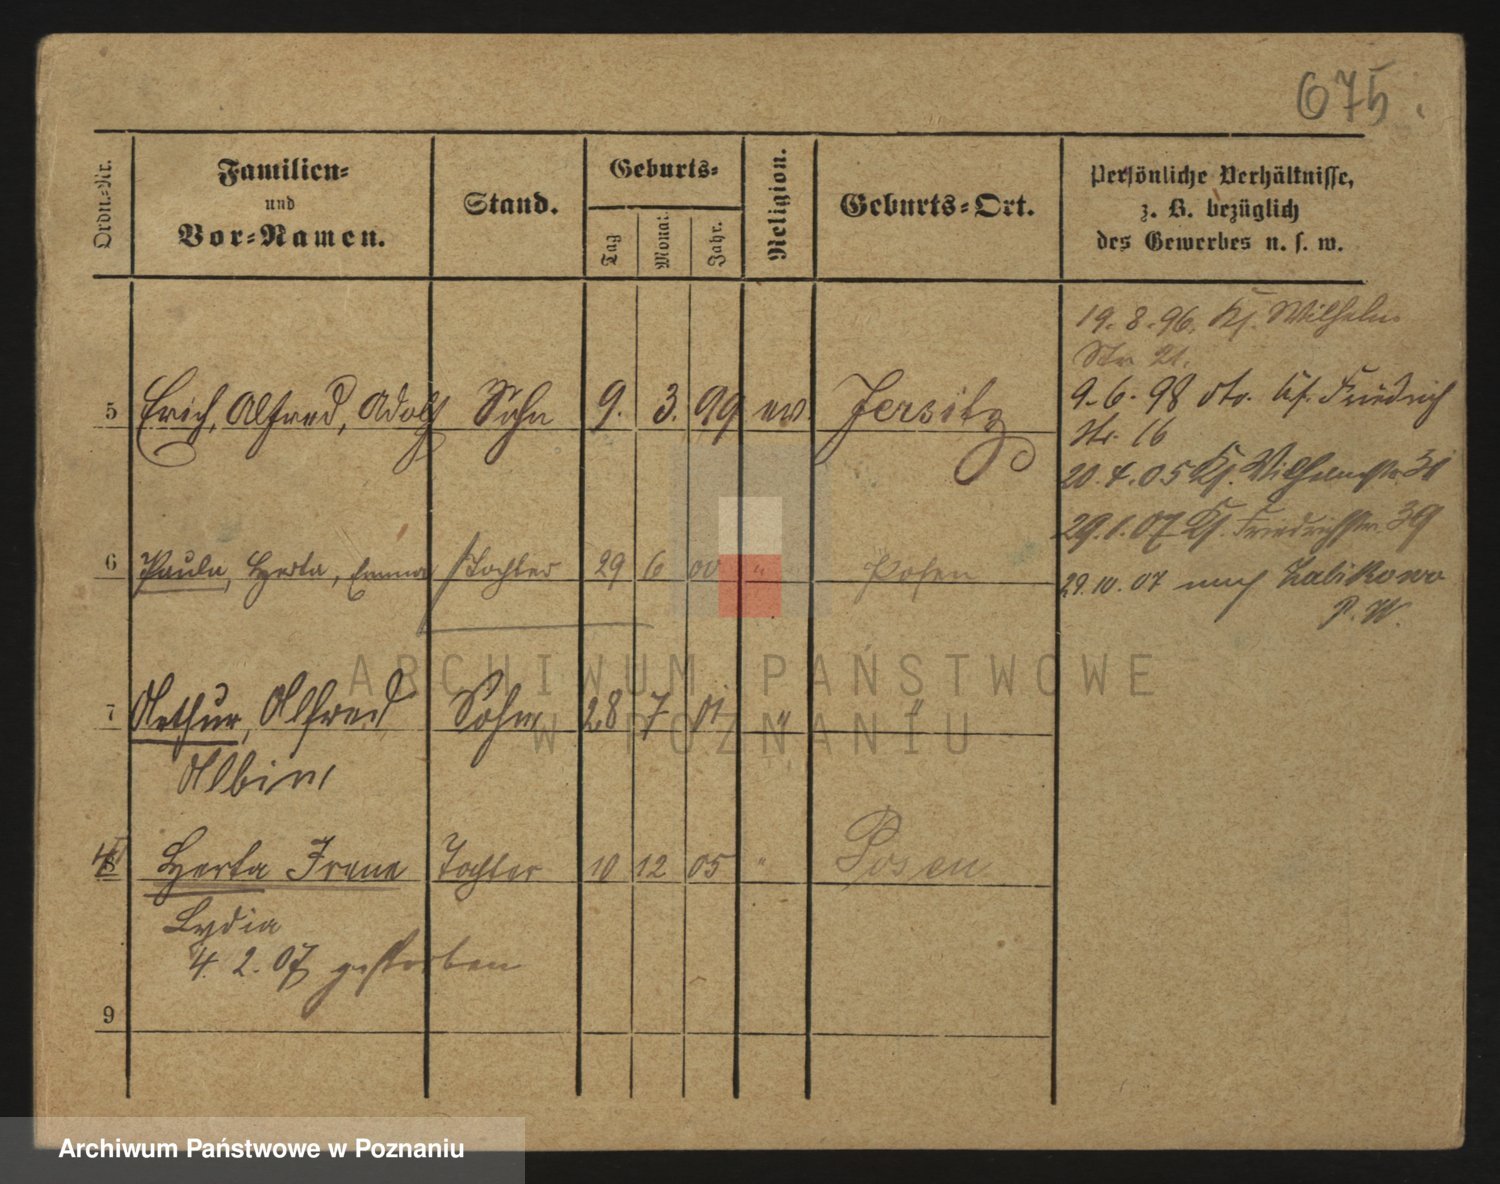 675.
Ordn.-Nr.
Familien-
und
Vor-Namen.
Stand.
Geburts-
Tag
Monat
Jahr.
Religion.
Geburts-Ort.
Persönliche Verhältnisse,
z. B. bezüglich
des Gewerbes u. s. w.
19.8.96. Wilhelm
Str 21.
5 Erich, Alfred, Adolf Sohn 9. 3. 99 ev Jersitz
9.6.98 Friedrich
str. 16
20.4.05 Wilhelmstr. 31
29.1.07 Friedrichstr. 39
6 Paula, Herta, Emma Tochter 29 6 00 " Posen
29.10.07 nach Zabikowo
P. W.
7 Arthur, Alfred Sohn 28 7 01 " "
Albin
8 Herta Irene Tochter 10 12 05 " Posen
Lydia
4. 2. 07 gestorben
9
ARCHIWUM PAŃSTWOWE
W POZNANIU
Archiwum Państwowe w Poznaniu